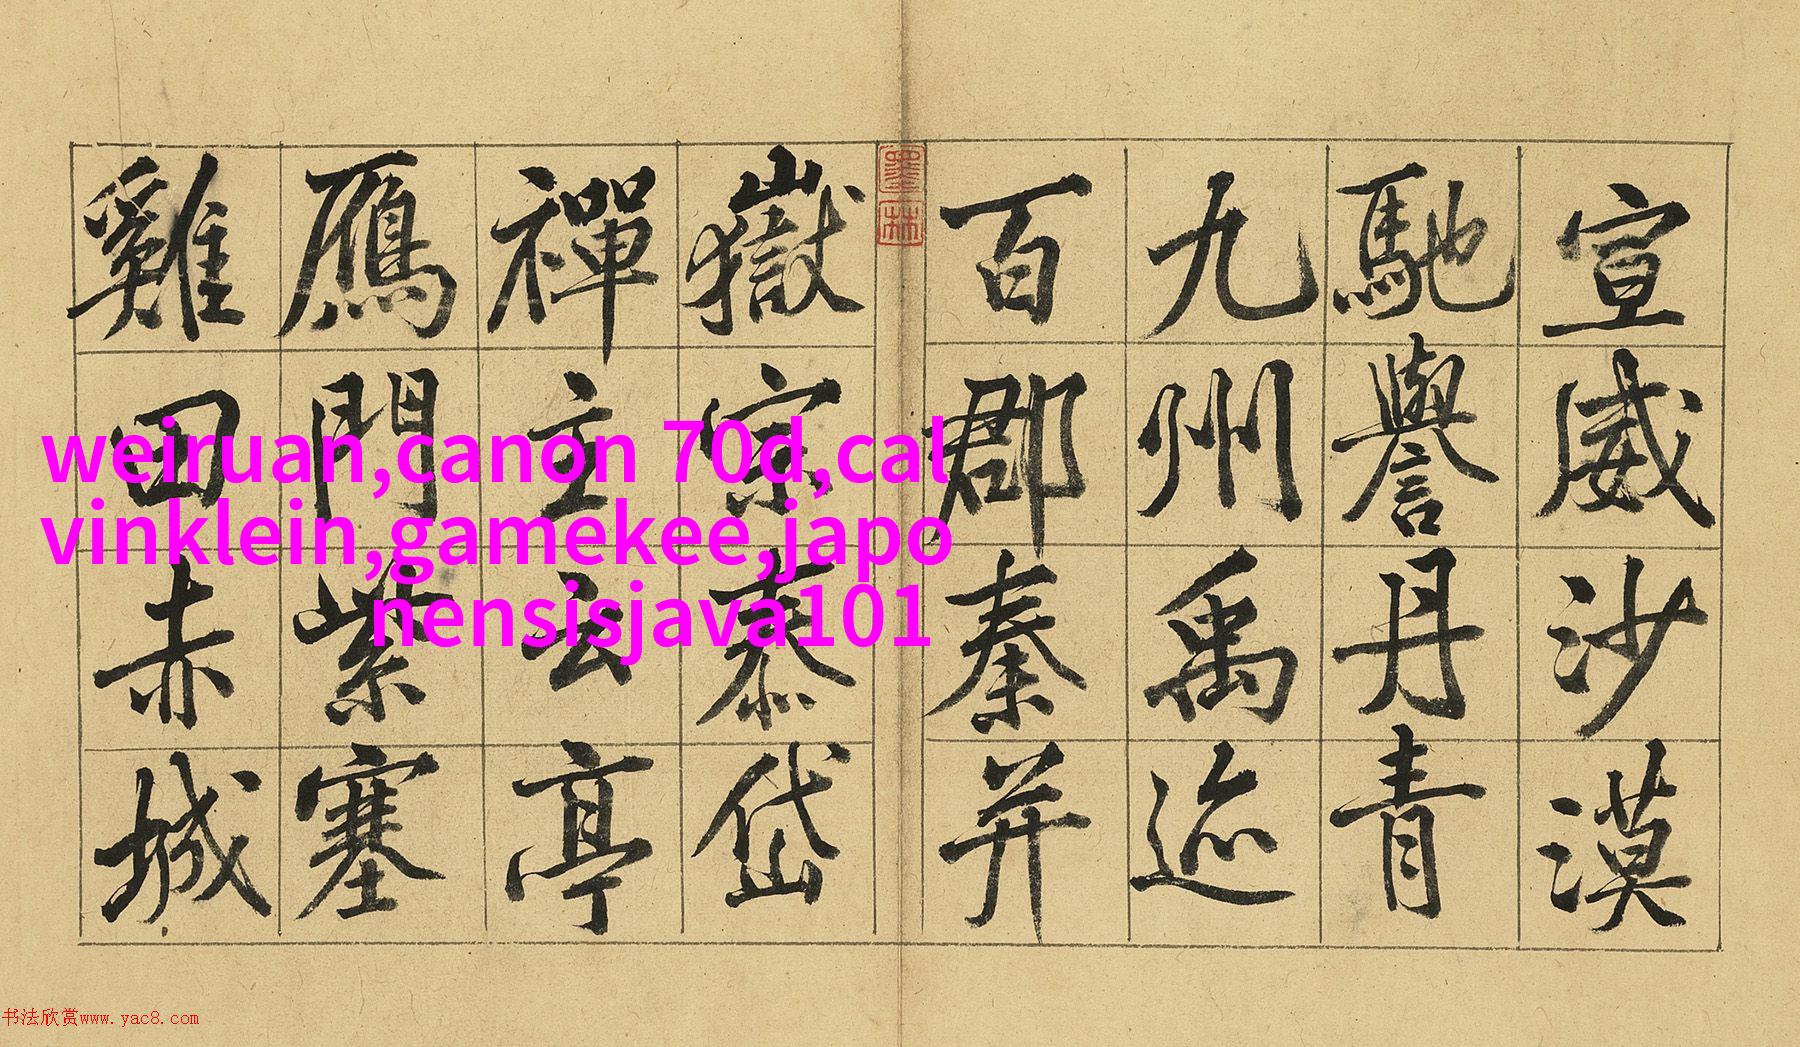 宣威沙漠
馳譽丹青
九州禹迹
百郡秦并
墨林
嶽宗泰岱
禪主云亭
鴈門紫塞
雞田赤城
weiruan,canon 70d,cal
vinklein,gamekee,japo
nensisjava101
书法欣赏www.yac8.com